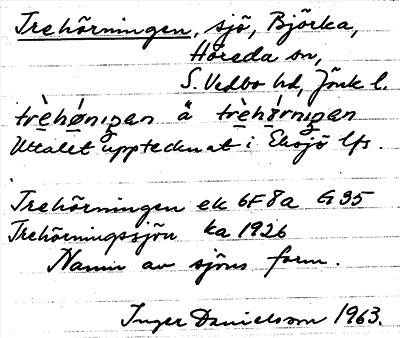 Trehörningen, sjö, Björka,
Höreda sn,
S. Vedbo hd, Jönk l.
trèhø̀niŋan ä trèhørniŋan
Uttalet upptecknat i Eksjö lfs.
Trehörningen ek 6F8a G35
Trehörningssjön ka 1926
Namn av sjöns form.
Inger Danielsson 1963.